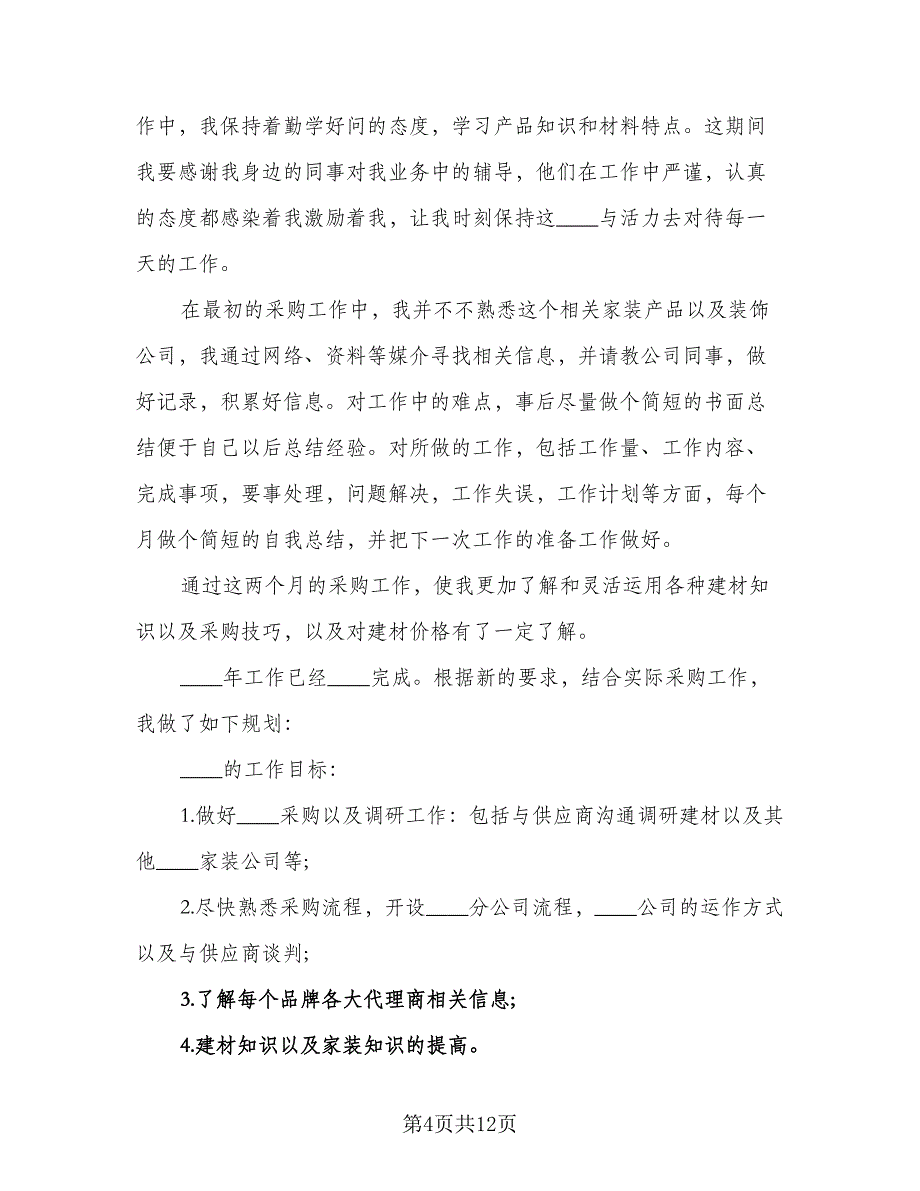 作中，我保持着勤学好问的态度，学习产品知识和材料特点。这期间
我要感谢我身边的同事对我业务中的辅导，他们在工作中严谨，认真
的态度都感染着我激励着我，让我时刻保持这____与活力去对待每一
天的工作。
在最初的采购工作中，我并不不熟悉这个相关家装产品以及装饰
公司，我通过网络、资料等媒介寻找相关信息，并请教公司同事，做
好记录，积累好信息。对工作中的难点，事后尽量做个简短的书面总
结便于自己以后总结经验。对所做的工作，包括工作量、工作内容、
完成事项，要事处理，问题解决，工作失误，工作计划等方面，每个
月做个简短的自我总结，并把下一次工作的准备工作做好。
通过这两个月的采购工作，使我更加了解和灵活运用各种建材知
识以及采购技巧，以及对建材价格有了一定了解。
____年工作已经____完成。根据新的要求，结合实际采购工作，
我做了如下规划：
____的工作目标：
1.做好____采购以及调研工作：包括与供应商沟通调研建材以及其
他____家装公司等;
2.尽快熟悉采购流程，开设____分公司流程，____公司的运作方式
以及与供应商谈判;
3.了解每个品牌各大代理商相关信息;
4.建材知识以及家装知识的提高。
第4页共12页